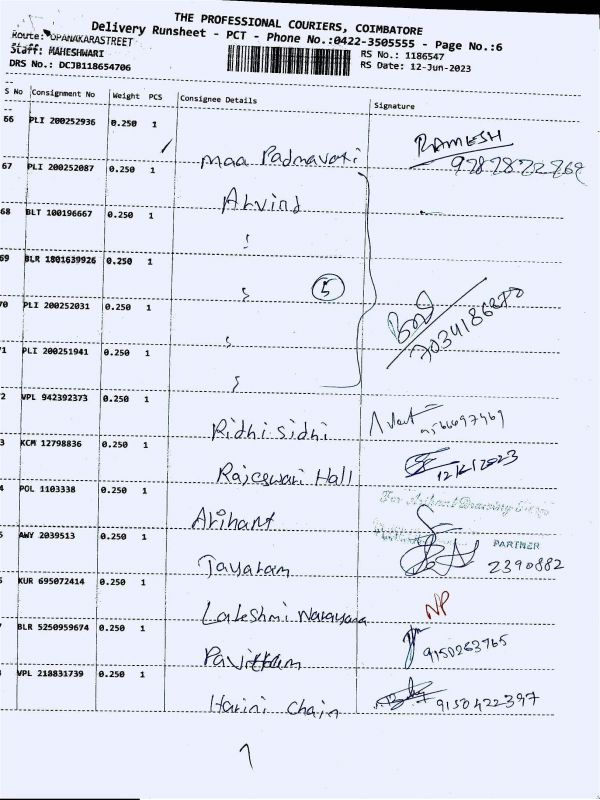 THE PROFESSIONAL COURIERS, COIMBATORE
Delivery Runsheet - PCT - Phone No.:0422-3505555 - Page No.:6
Route: OPANAKARASTREET
RS No.: 1186547
Staff: MAHESHWARI
RS Date: 12-Jun-2023
DRS No.: DCJB118654706
S No Consignment No Weight PCS Consignee Details Signature
66 PLI 200252936 0.250 1 Maa Padmavati RAMESH
67 PLI 200252087 0.250 1 Arvind
68 BLT 100196667 0.250 1
69 BLR 1801639926 0.250 1 5
70 PLI 200252031 0.250 1
1 PLI 200251941 0.250 1
2 VPL 942392373 0.250 1 Ridhi sidhi
3 KCM 12798836 0.250 1 Rajeswari Hall
4 POL 1103338 0.250 1 Arihant
5 AWY 2039513 0.250 1 Jayaram PARTNER 2390882
KUR 695072414 0.250 1 Lakshmi Narayana NP
BLR 5250959674 0.250 1 9150263765
VPL 218831739 0.250 1 Harini chain 9150422397